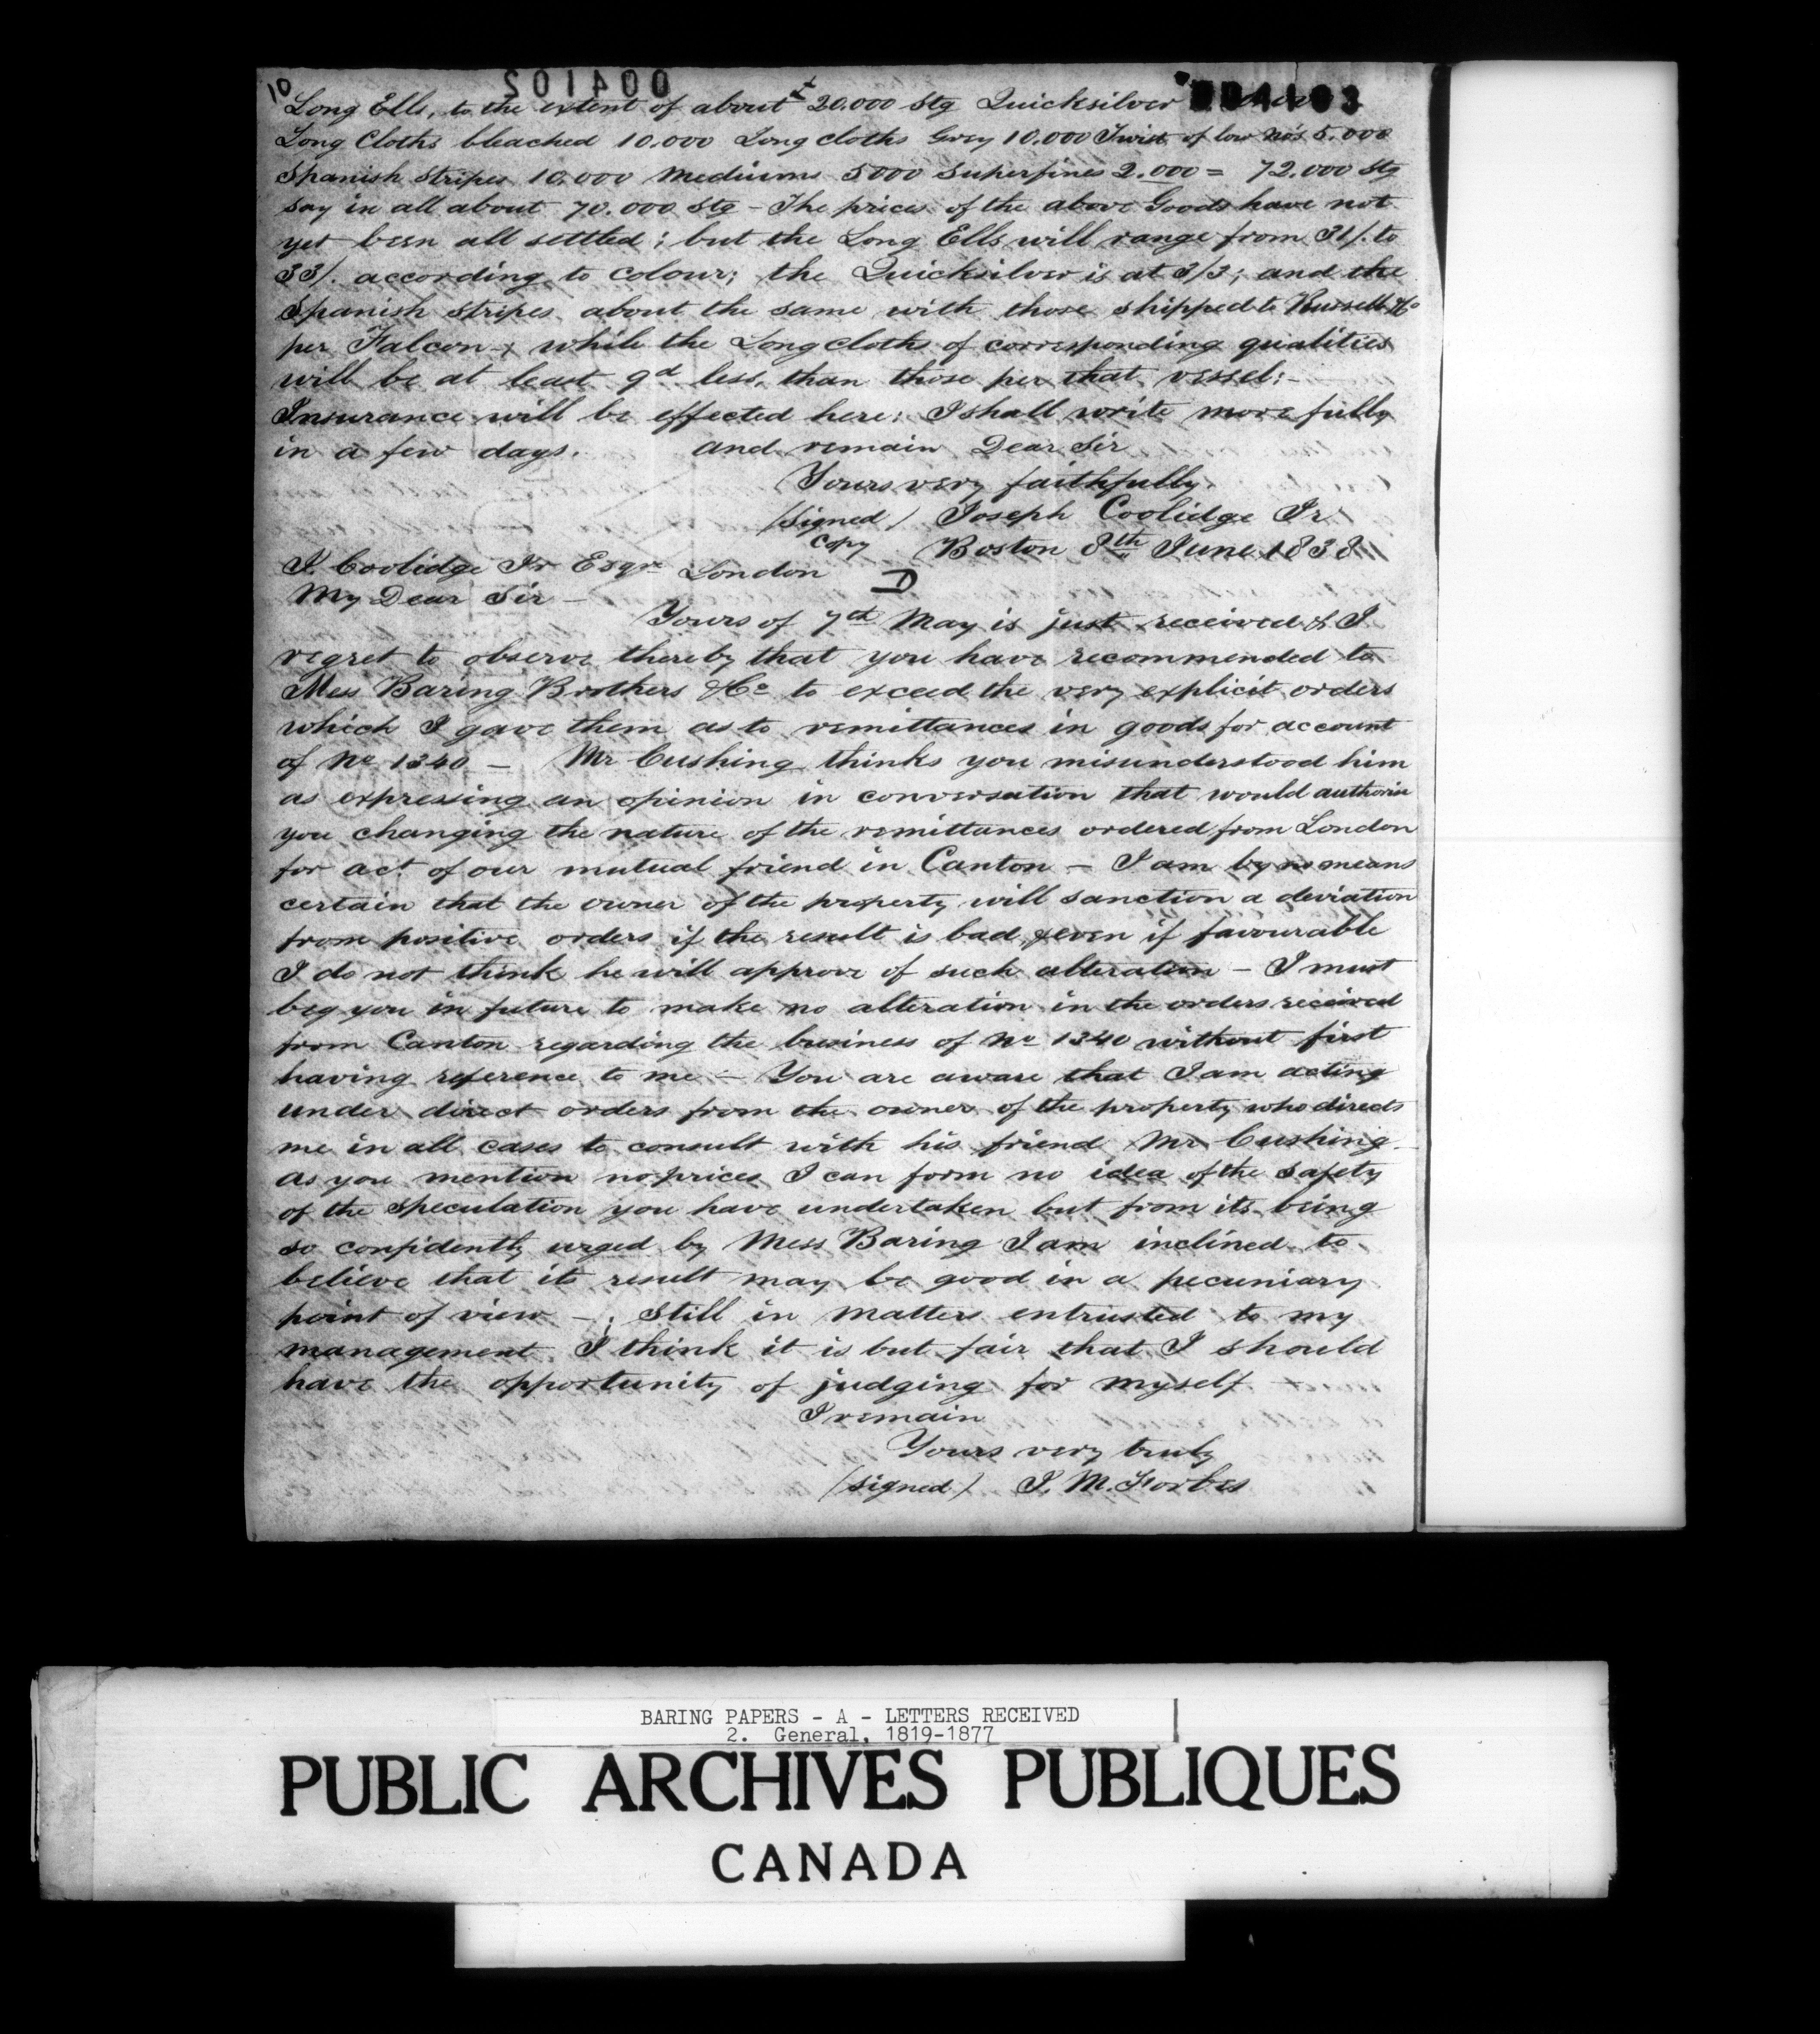 10
004102
004103
Long Ells, to the extent of about £ 20.000 Stg Quicksilver
Long Cloths bleached 10.000 Long cloths Grey 10.000 Twist of low No's 5.000
Spanish Stripes 10.000 Mediums 5000 Superfines 2.000 = 72.000 Stg
say in all about 70.000 Stg – The prices of the above Goods have not
yet been all settled; but the Long Ells will range from 31/. to
33/. according to colour; the Quicksilver is at 3/3; and the
Spanish Stripes about the same with those shipped to Russell & Co
per Falcon; while the Longcloths of corresponding qualities
will be at least 9d less, than those per that vessel:-
Insurance will be effected here: I shall write more fully
in a few days. and remain Dear Sir
Yours very faithfully.
(Signed) Joseph Coolidge Jr
Copy Boston 8th June 1838
J. Coolidge Jr Esqre London
D
My Dear Sir –
Yours of 7th May is just received & I
regret to observe thereby that you have recommended to
Mess Baring Brothers & Co to exceed the very explicit orders
which I gave them as to remittances in goods for account
of No 1340 – Mr Cushing thinks you misunderstood him
as expressing an opinion in conversation that would authorise
you changing the nature of the remittances ordered from London
for act. of our mutual friend in Canton – I am by no means
certain that the owner of the property will sanction a deviation
from positive orders if the result is bad, & even if favourable
I do not think he will approve of such alteration – I must
beg you in future to make no alteration in the orders received
from Canton regarding the business of No 1340 without first
having reference to me – You are aware that I am acting
under direct orders from the owner of the property who directs
me in all cases to consult with his friend Mr Cushing –
as you mention no prices I can form no idea of the safety
of the speculation you have undertaken but from its being
so confidently urged by Mess Baring I am inclined to
believe that its result may be good in a pecuniary
point of view – ; Still in matters entrusted to my
management I think it is but fair that I should
have the opportunity of judging for myself.
I remain
Yours very truly
(signed) J. M. Forbes
BARING PAPERS - A - LETTERS RECEIVED
2. General, 1819-1877
PUBLIC ARCHIVES PUBLIQUES
CANADA